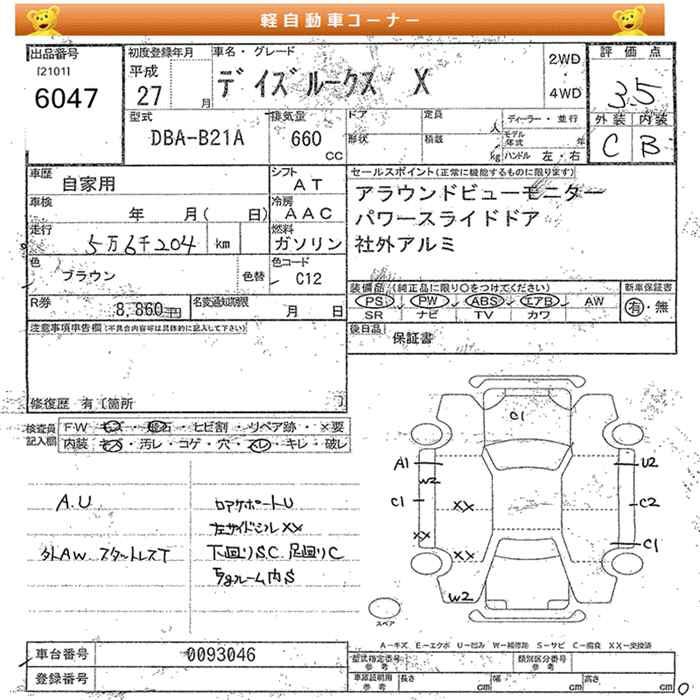 軽自動車コーナー
出品番号
[2101]
6047
初度登録年月
平成
27 月
車名・グレード
デイズルークス X
2WD
4WD
評価点
3.5
外装 内装
C B
型式
DBA-B21A
排気量
660
CC
ドア
形状
定員
人
積載
kg
ディーラー・並行
モデル年式 年
ハンドル 左・右
車歴
自家用
シフト
AT
車検
年 月( 日)
冷房
AAC
走行
5万6千204 km
燃料
ガソリン
色
ブラウン
色替
色コード
C12
R券
8,860円
名変通知期限
月 日
セールスポイント(正常に機能するものに限ります)
アラウンドビューモニター
パワースライドドア
社外アルミ
装備品(純正品に限り○をつけてください)
新車保証書
PS PW ABS エアB AW
SR ナビ TV カワ
有・無
後日品
保証書
注意事項申告欄(不具合内容等は具体的に記入して下さい)
修復歴 有〔箇所 〕
検査員記入欄
FW キズ・飛石・ヒビ割・リペア跡・×要
内装 キズ・汚レ・コゲ・穴・スレ・キレ・破レ
A.U
外AW スタットレスT
ロアサポートU
左サイドシル XX
下回りSC 足回りC
C1
A1
W2
C1
XX
XX
XX
W2
U2
C2
C1
スペア
A-キズ E-エクボ U-凹み W-補修跡 S-サビ C-腐食 XX-交換済
車台番号
0093046
登録番号
型式指定番号
参考
類別区分番号
参考
車庫証明用
参考
長さ cm
幅 cm
高さ cm